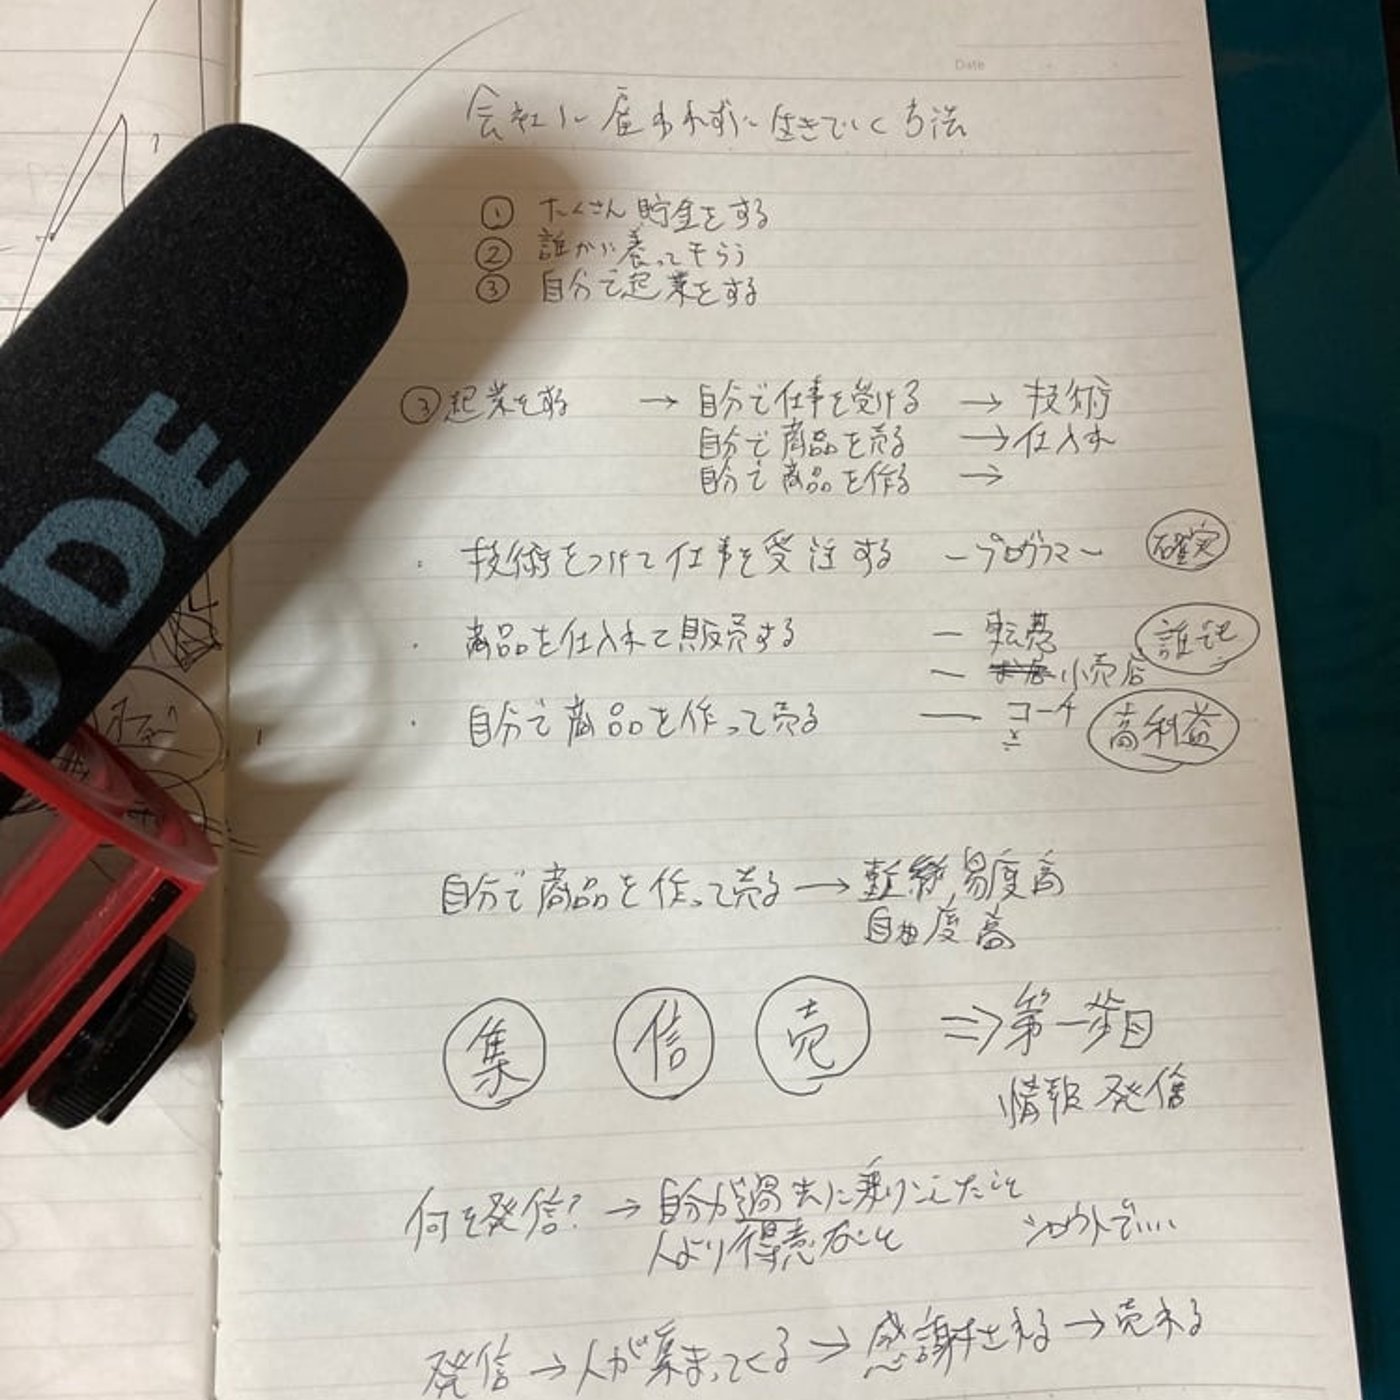 Date
会社に雇われずに生きていく方法
① たくさん貯金をする
② 誰かに養ってもらう
③ 自分で起業をする
③起業をする → 自分で仕事を受ける → 技術
自分で商品を売る → 仕入れ
自分で商品を作る →
・技術をつけて仕事を受注する ープログラマー 確実
・商品を仕入れて販売する ー 転売 誰でも
ー 小売店
・自分で商品を作って売る ー コーチ 高利益
自分で商品を作って売る → 難易度高
自由度高
集 信 売 ⇒ 第一歩目
情報発信
何を発信? → 自分が過去に乗りこえたこと
人より得意なこと シロウトでいい
発信 → 人が集まってくる → 感謝される → 売れる
ODE